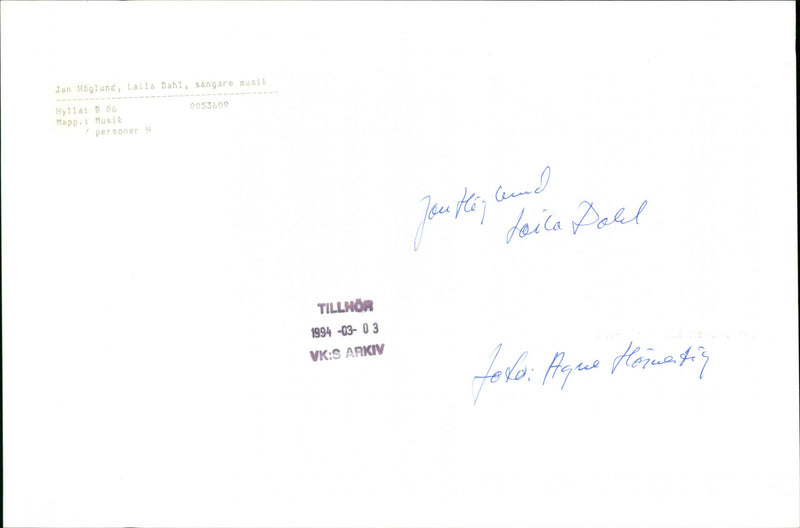 Jan Höglund, Laila Dahl, sångare musik
Hylla: B 06 0053609
Mapp.: Musik
/ personer H
Jan Höglund
Laila Dahl
TILLHÖR
1994 -03- 03
VK:S ARKIV
foto: Agne Hörnestig